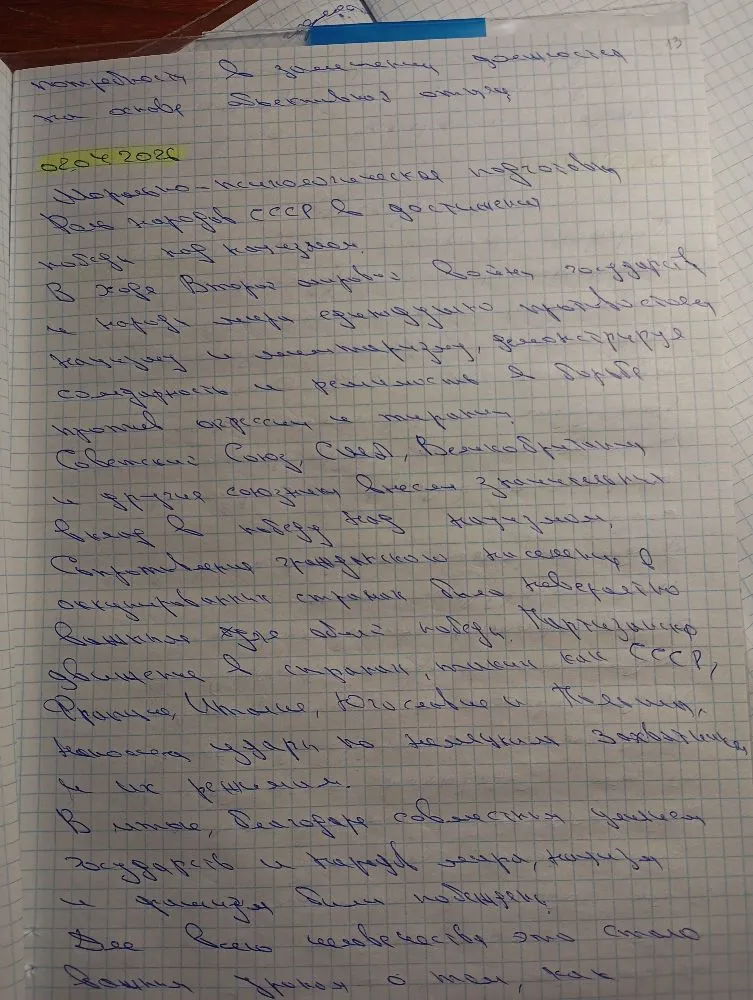 13
потребности в замещении должностей
на основе объективной оценки
02 04 2026
Морально-психологическая подготовка
Роль народов СССР в достижении
победы над нацизмом.
В ходе Второй мировой войны государств
и народы мира единодушно противостоял
нацизму и милитаризму, демонстрируя
солидарность и решимость в борьбе
против агрессии и тирании.
Советский Союз, США, Великобритания
и другие союзники внесли значительный
вклад в победу над нацизмом.
Сопротивление гражданского населения в
оккупированных странах было невероятно
важным для общей победы. Партизанско
движение в странах, таких как СССР,
Франция, Италия, Югославия и Польша,
наносили удары по немецким захватчика
и их режимам.
В итоге, благодаря совместным усилиям
государств и народов мира, нацизм
и фашизм были побеждены.
Для всего человечества это стало
важным уроком о том, как